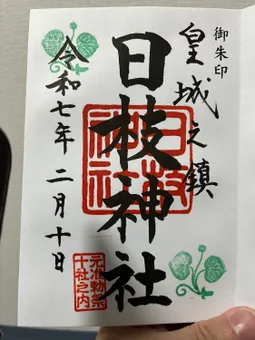 御朱印
皇城之鎮
日枝神社
日枝神社
令和七年二月十日
元准勅祭
十社之内